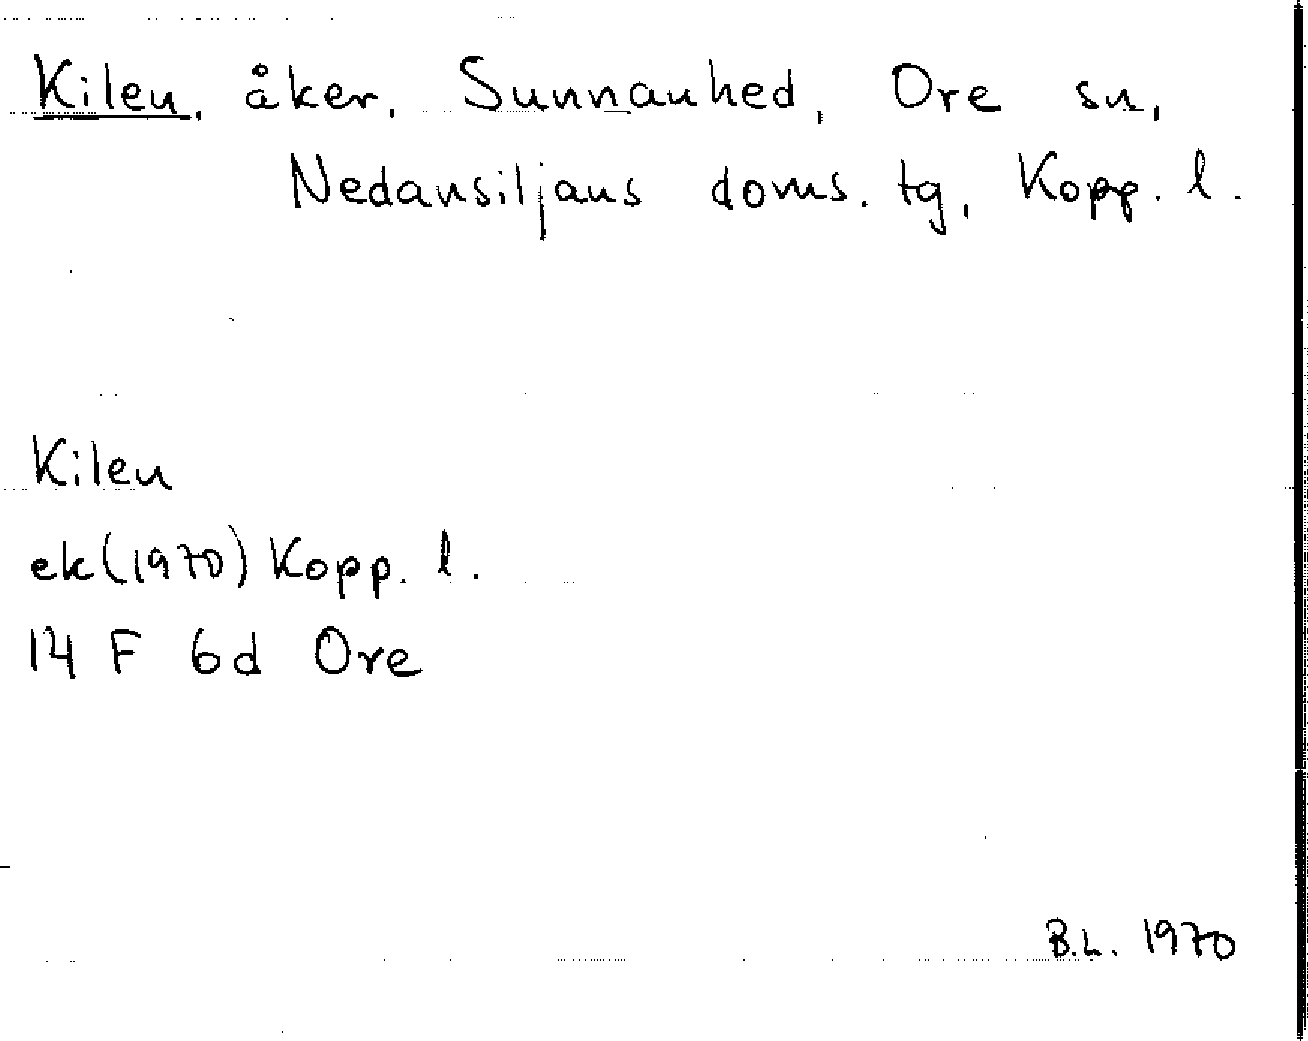 Kilen, åker, Sunnanhed, Ore sn,
Nedansiljans doms. tg, Kopp. l.
Kilen
ek(1970) Kopp. l.
14 F 6d Ore
B.L. 1970